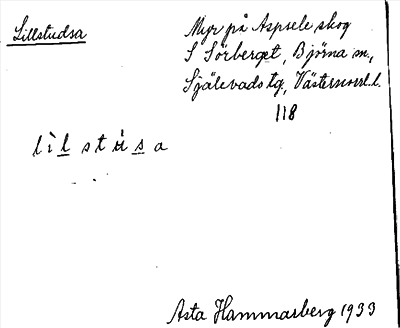 Lillstudsa
Myr på Aspsele skog
S Sörberget, Björna sn,
Själevads tg, Västernorrl. l.
118
lìl stùsa
Asta Hammarberg 1933